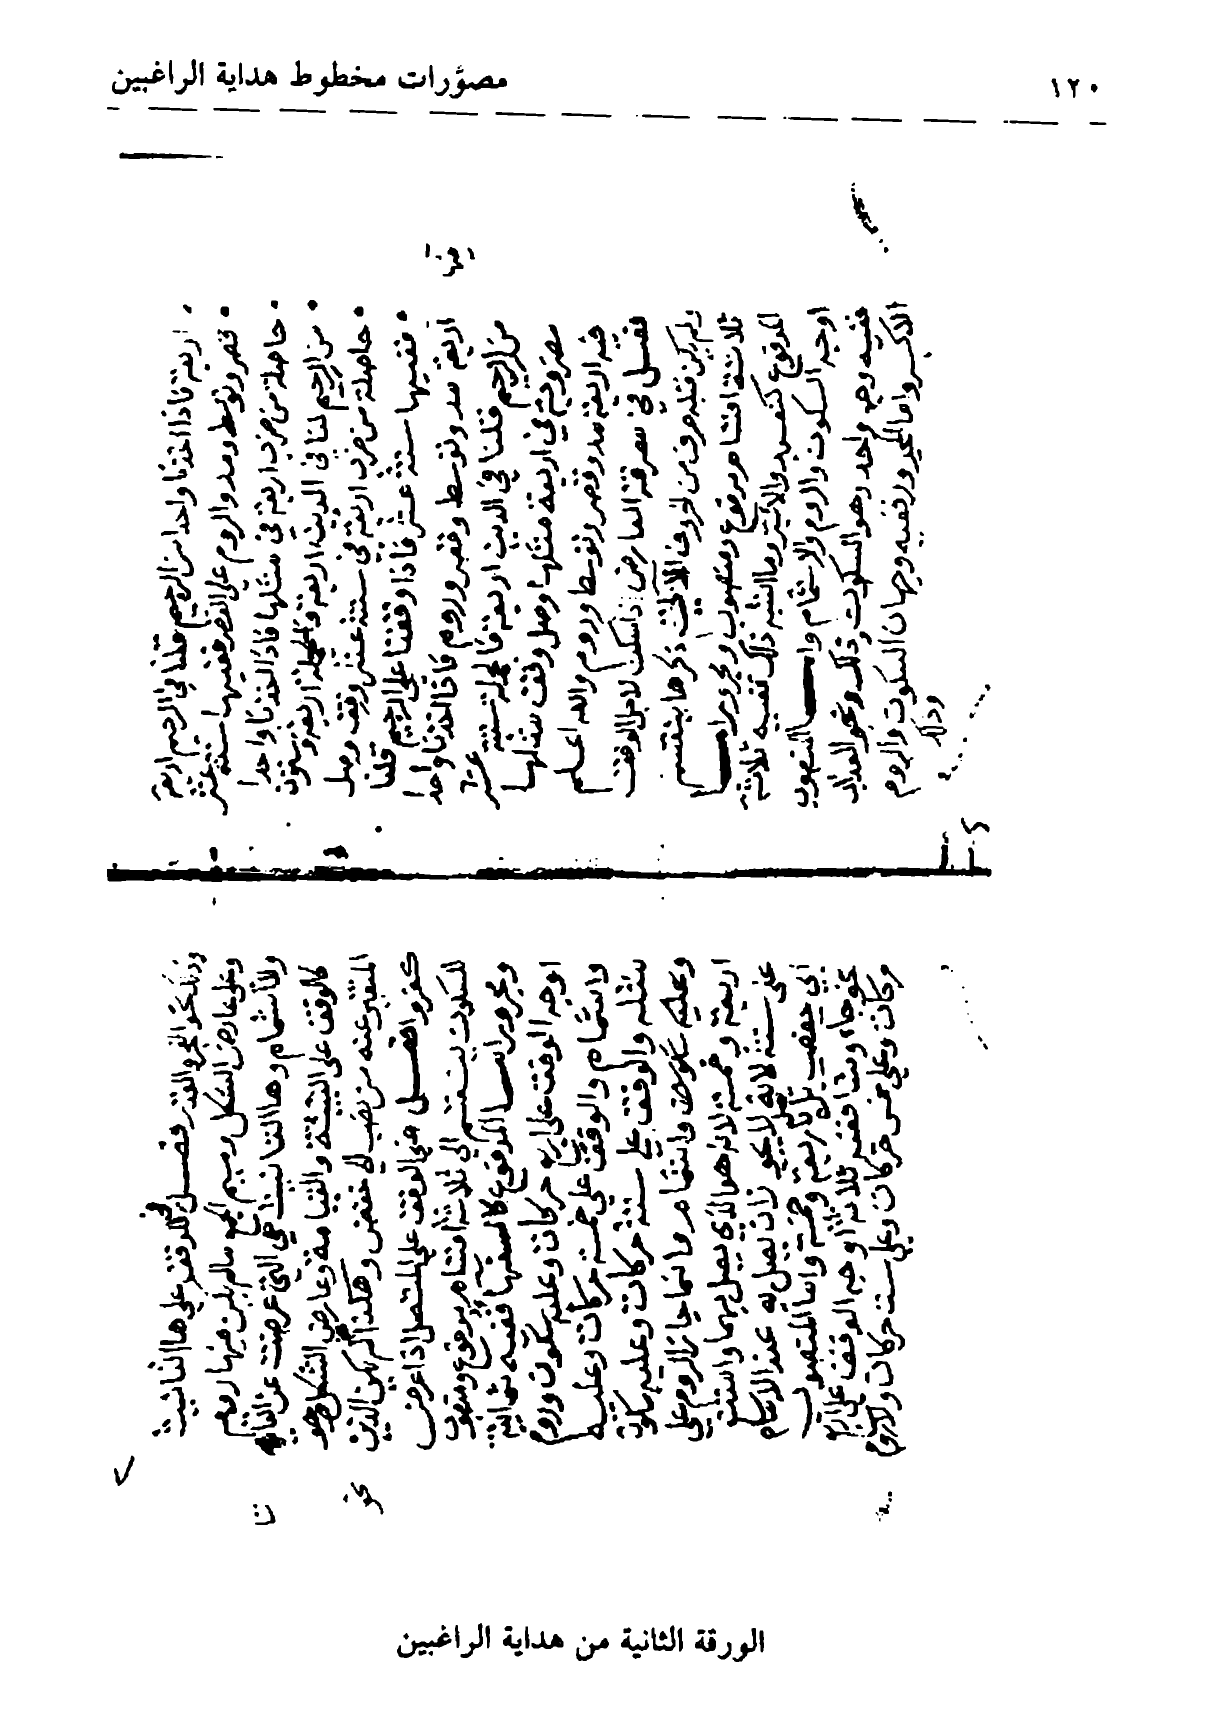 مصوَّرات مخطوط هداية الراغبين
١٢٠
اربعة فاذا اخذنا واحدا من الرحيم قلنا في الرحيم اربعة
قصر وتوسط ومد والروم على القصر ففيها ستة عشر
حاصلة من ضرب اربعة في مثلها فاذا اخذنا واحدا
من الرحيم لنا في الدين اربعة والجملة اربعة وستون
حاصلة من ضرب اربعة في ستة عشر وقف وصل
ففيها ستة عشر فاذا وقفنا على الرحيم قلنا
اربع مد وتوسط وقصر وروم فاذا اخذنا واحدا
من الرحيم قلنا في الدين اربعة فالجملة ستة عشر
مضروبة في اربعة مثلها وصل وقف مثلها
هذه اربعة مد وقصر وتوسط وروم والله اعلم
فصل في معرفة العارض اذا سكن لاجل الوقف
ولم يكن قبله حرف من الحروف اللاتي ذكرها ينقسم
ثلاثة اقسام مرفوع ومنصوب ومجرور اما
المرفوع كنعبد والابتر وما اشبه ذلك ففيه ثلاثة
اوجه السكون والروم والاشمام واما المنصوب
ففيه وجه واحد وهو السكون وذلك نحو العذاب
الذكر واما المجرور ففيه وجهان السكون والروم
وذلك
وذلك نحو الخبر والقدر فصل في الوقف على هاء التانيث
وعلى عارض الشكل وميم الجمع سالم يكن فيها روم
ولا اشمام وهاء التانيث هي التي عرضت عن التاء
كالوقف على والقيامة وعارض الشكل هو
المتغير عنه من نصب الى خفض وهكذا لم يكن الذين
كفروا فصل في الوقف على المتصل اذا عرض
للسكون ينقسم الى ثلاثة اقسام مرفوع ومنصوب
ومجرور اما المرفوع كالسفهاء ففيه ثمانية
اوجه الوقف على اربع حركات وعليه سكون وروم
واشمام والوقف على خمسة حركات وعليه
مثله والوقف على ستة حركات وعليه سكون
وعليه سكون واشمام وانما جاز الروم على
اربعة وخمسة لانه هو الذي يصل بهما وامتنع
على ستة لانه لا يجوز ان يصل به عند الامام
ابي حفص بل باربعة وخمسة واما المنصوب
نحو جاء وشاء ففيه ثلاثة اوجه الوقف على اربع
حركات وعلى خمس حركات وعلى ست حركات ولا روم
الورقة الثانية من هداية الراغبين